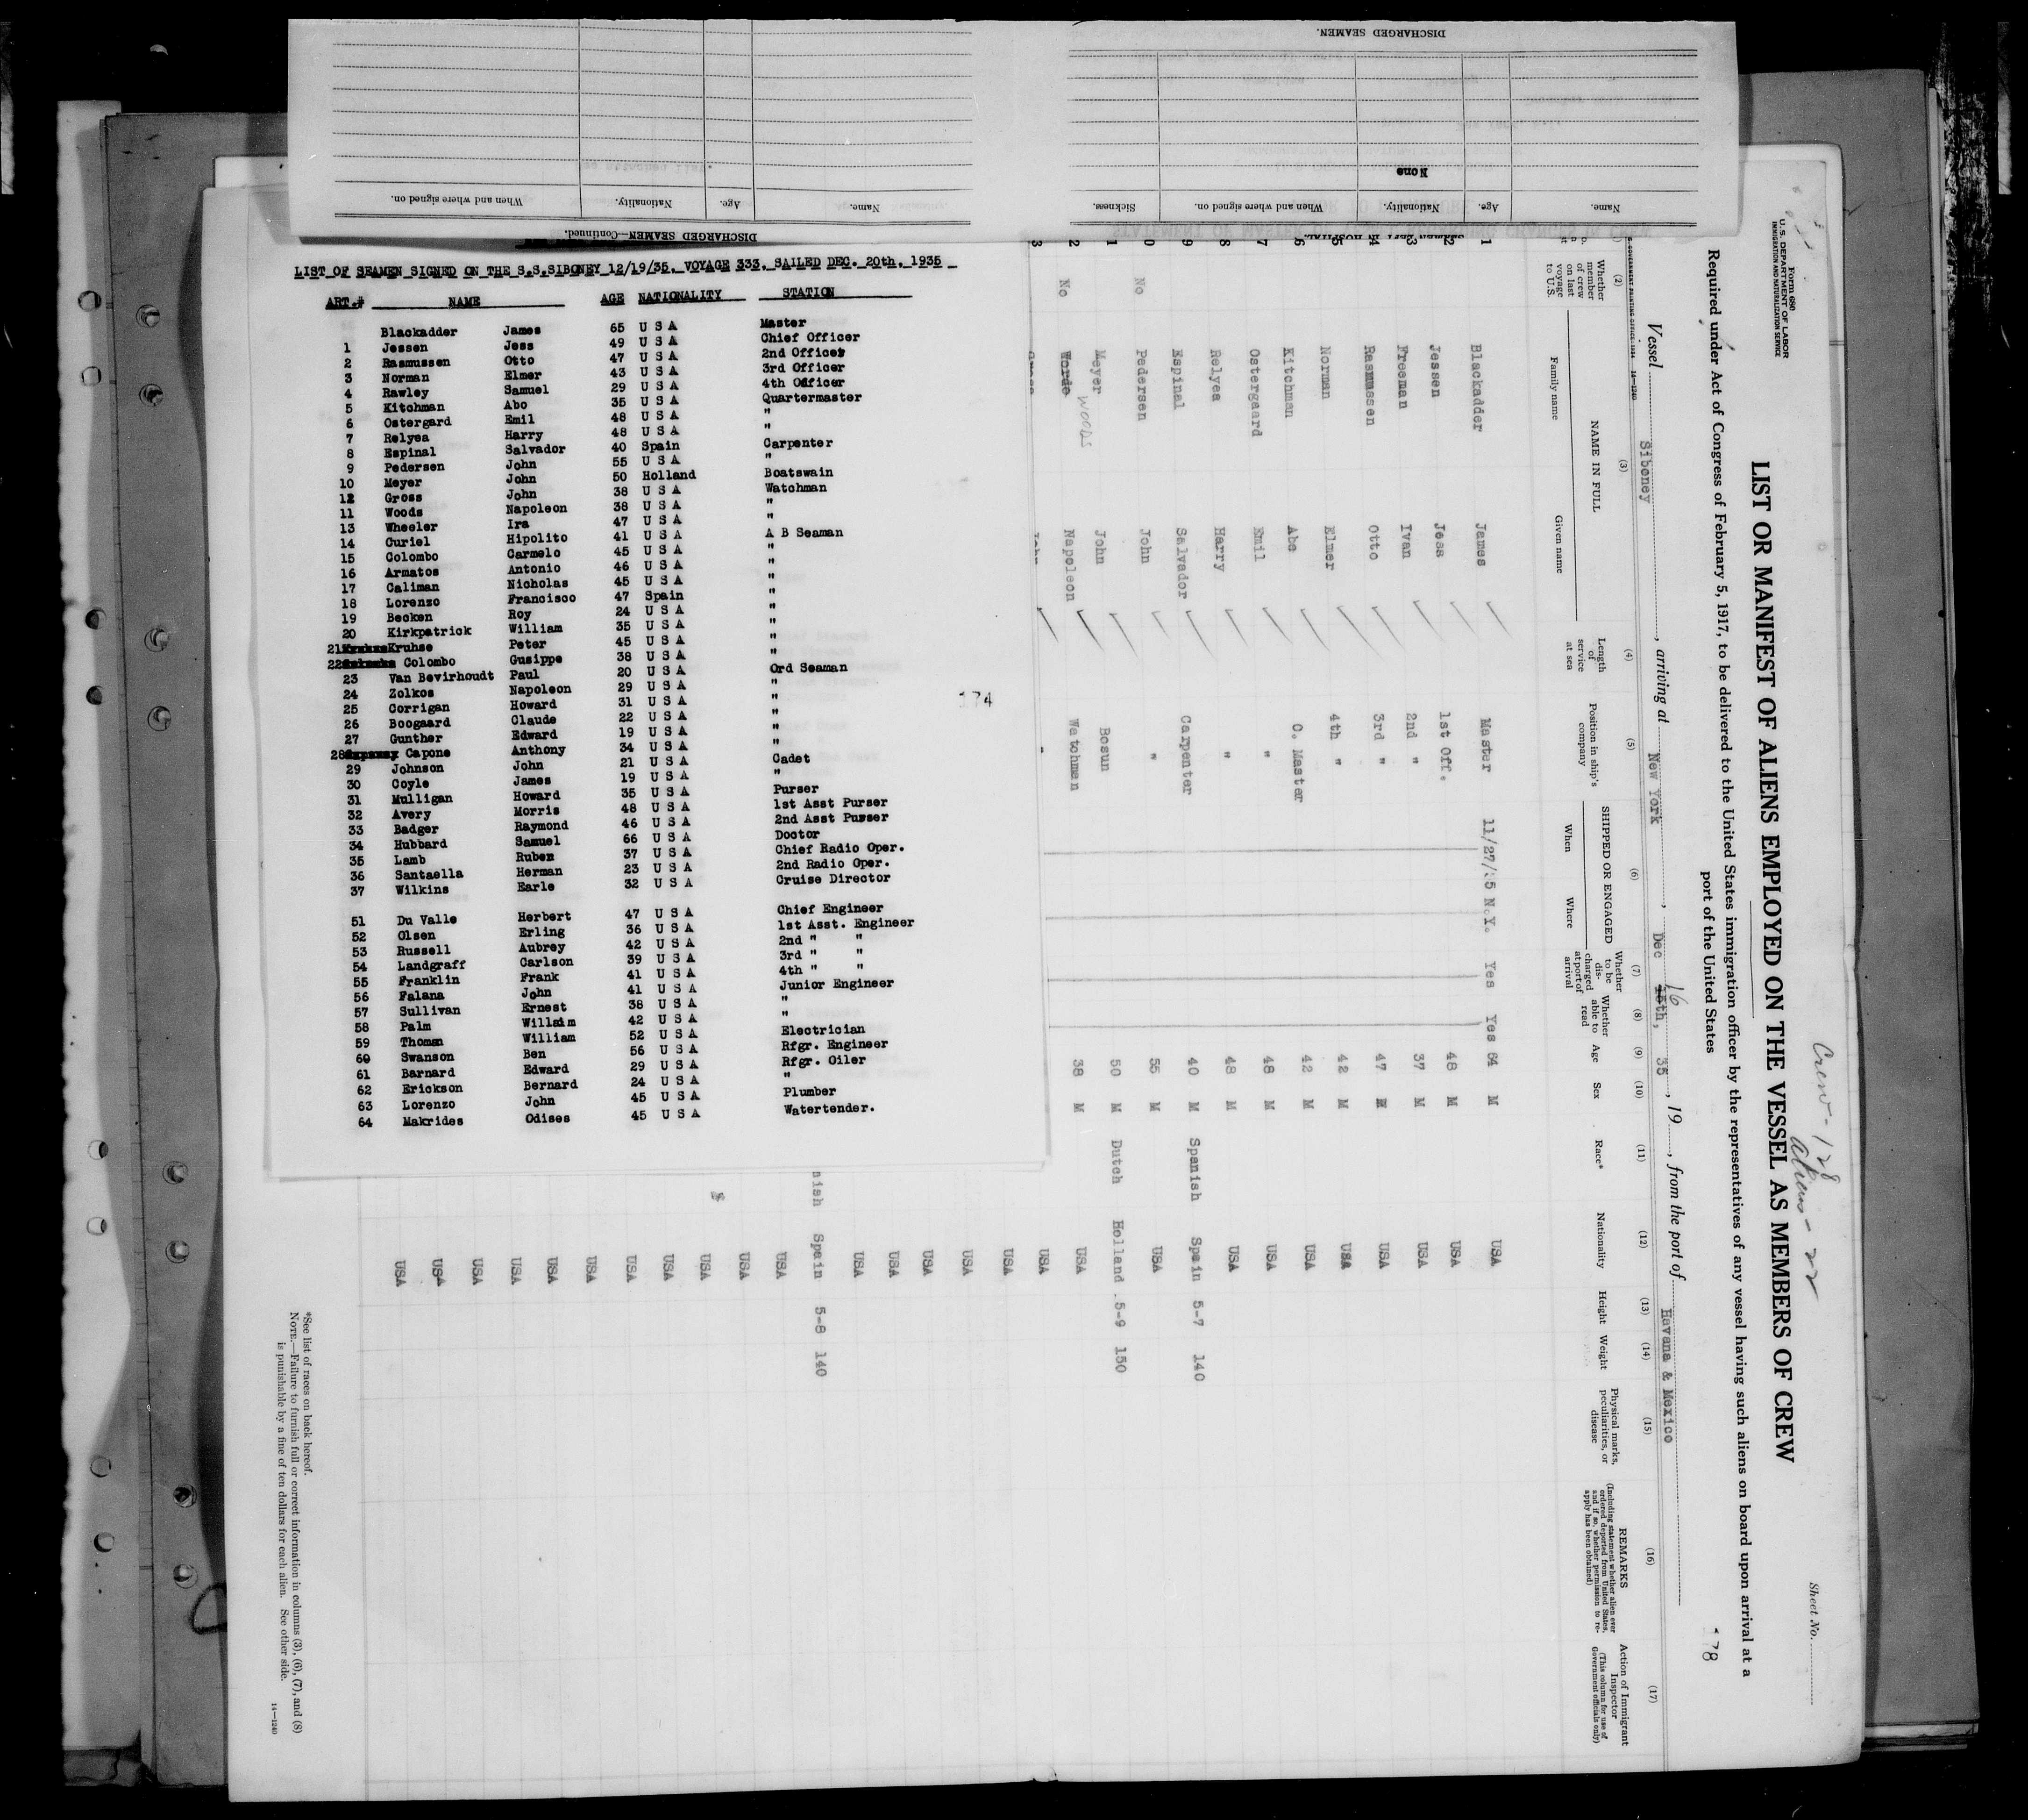 DISCHARGED SEAMEN.
None
Name.
Age.
Nationality.
When and where signed on.
Sickness.
Name.
Age.
Nationality.
When and where signed on.
DISCHARGED SEAMEN—Continued.
LIST OF SEAMEN SIGNED ON THE S.S.SIBONEY 12/19/35. VOYAGE 333. SAILED DEC. 20th. 1935
ART.# NAME AGE NATIONALITY STATION
Blackadder James 65 U S A Master
1 Jessen Jess 49 U S A Chief Officer
2 Rasmussen Otto 47 U S A 2nd Officer
3 Norman Elmer 43 U S A 3rd Officer
4 Rawley Samuel 29 U S A 4th Officer
5 Kitchman Abo 35 U S A Quartermaster
6 Ostergard Emil 48 U S A "
7 Relyea Harry 48 U S A "
8 Espinal Salvador 40 Spain Carpenter
9 Pedersen John 55 U S A "
10 Meyer John 50 Holland Boatswain
12 Gross John 38 U S A Watchman
11 Woods Napoleon 38 U S A "
13 Wheeler Ira 47 U S A "
14 Curiel Hipolito 41 U S A A B Seaman
15 Colombo Carmelo 45 U S A "
16 Armatos Antonio 46 U S A "
17 Caliman Nicholas 45 U S A "
18 Lorenzo Francisco 47 Spain "
19 Becken Roy 24 U S A "
20 Kirkpatrick William 35 U S A "
21 Kruhse Peter 45 U S A "
22 Colombo Gusippe 38 U S A "
23 Van Bevirhoudt Paul 20 U S A Ord Seaman
24 Zolkos Napoleon 29 U S A "
25 Corrigan Howard 31 U S A "
26 Boogaard Claude 22 U S A "
27 Gunther Edward 19 U S A "
28 Capone Anthony 34 U S A "
29 Johnson John 21 U S A Cadet
30 Coyle James 19 U S A "
31 Mulligan Howard 35 U S A Purser
32 Avery Morris 48 U S A 1st Asst Purser
33 Badger Raymond 46 U S A 2nd Asst Purser
34 Hubbard Samuel 66 U S A Doctor
35 Lamb Ruben 37 U S A Chief Radio Oper.
36 Santaella Herman 23 U S A 2nd Radio Oper.
37 Wilkins Earle 32 U S A Cruise Director
51 Du Valle Herbert 47 U S A Chief Engineer
52 Olsen Erling 36 U S A 1st Asst. Engineer
53 Russell Aubrey 42 U S A 2nd " "
54 Landgraff Carlson 39 U S A 3rd " "
55 Franklin Frank 41 U S A 4th " "
56 Falana John 41 U S A Junior Engineer
57 Sullivan Ernest 38 U S A "
58 Palm Willaim 42 U S A "
59 Thoman William 52 U S A Electrician
60 Swanson Ben 56 U S A Rfgr. Engineer
61 Barnard Edward 29 U S A Rfgr. Oiler
62 Erickson Bernard 24 U S A "
63 Lorenzo John 45 U S A Plumber
64 Makrides Odises 45 U S A Watertender.
174
Form 680
U.S. DEPARTMENT OF LABOR
IMMIGRATION AND NATURALIZATION SERVICE
Crew - 128
Aliens - 22
Sheet No.
LIST OR MANIFEST OF ALIENS EMPLOYED ON THE VESSEL AS MEMBERS OF CREW
Required under Act of Congress of February 5, 1917, to be delivered to the United States immigration officer by the representatives of any vessel having such aliens on board upon arrival at a
port of the United States
178
Vessel Siboney, arriving at New York, Dec 15th, 16 35, 19, from the port of Havana & Mexico
(2) (3) (4) (5) (6) (7) (8) (9) (10) (11) (12) (13) (14) (15) (16) (17)
Whether member of crew on last voyage to U.S.
NAME IN FULL
Family name Given name
Length of service at sea
Position in ship's company
SHIPPED OR ENGAGED
When Where
Whether to be discharged at port of arrival
Whether able to read
Age
Sex
Race*
Nationality
Height
Weight
Physical marks, peculiarities, or disease
REMARKS
(Including statement whether alien ever ordered deported from United States, and if so, whether permission to reapply has been obtained)
Action of Immigrant Inspector
(This column for use of Government officials only)
1 Blackadder James Master 11/27/35 N.Y. Yes Yes 64 M USA
2 Jessen Jess 1st Off. 48 M USA
3 Freeman Ivan 2nd " 37 M USA
4 Rasmussen Otto 3rd " 47 M USA
5 Norman Elmer 4th " 42 M USA
6 Kitchman Abe Q. Master 42 M USA
7 Ostergaard Emil " 48 M USA
8 Relyea Harry " 48 M USA
9 Espinal Salvador Carpenter 40 M Spanish Spain 5-7 140
0 No Pedersen John " 55 M USA
1 Meyer John Bosun 50 M Dutch Holland 5-9 150
2 No Words Woods Napoleon Watchman 38 M USA
3 Gross John " USA
USA
USA
USA
USA
nish Spain 5-8 140
USA
USA
USA
USA
USA
USA
USA
USA
USA
USA
USA
*See list of races on back hereof.
NOTE.—Failure to furnish full or correct information in columns (3), (6), (7), and (8)
is punishable by a fine of ten dollars for each alien. See other side.
14—1240